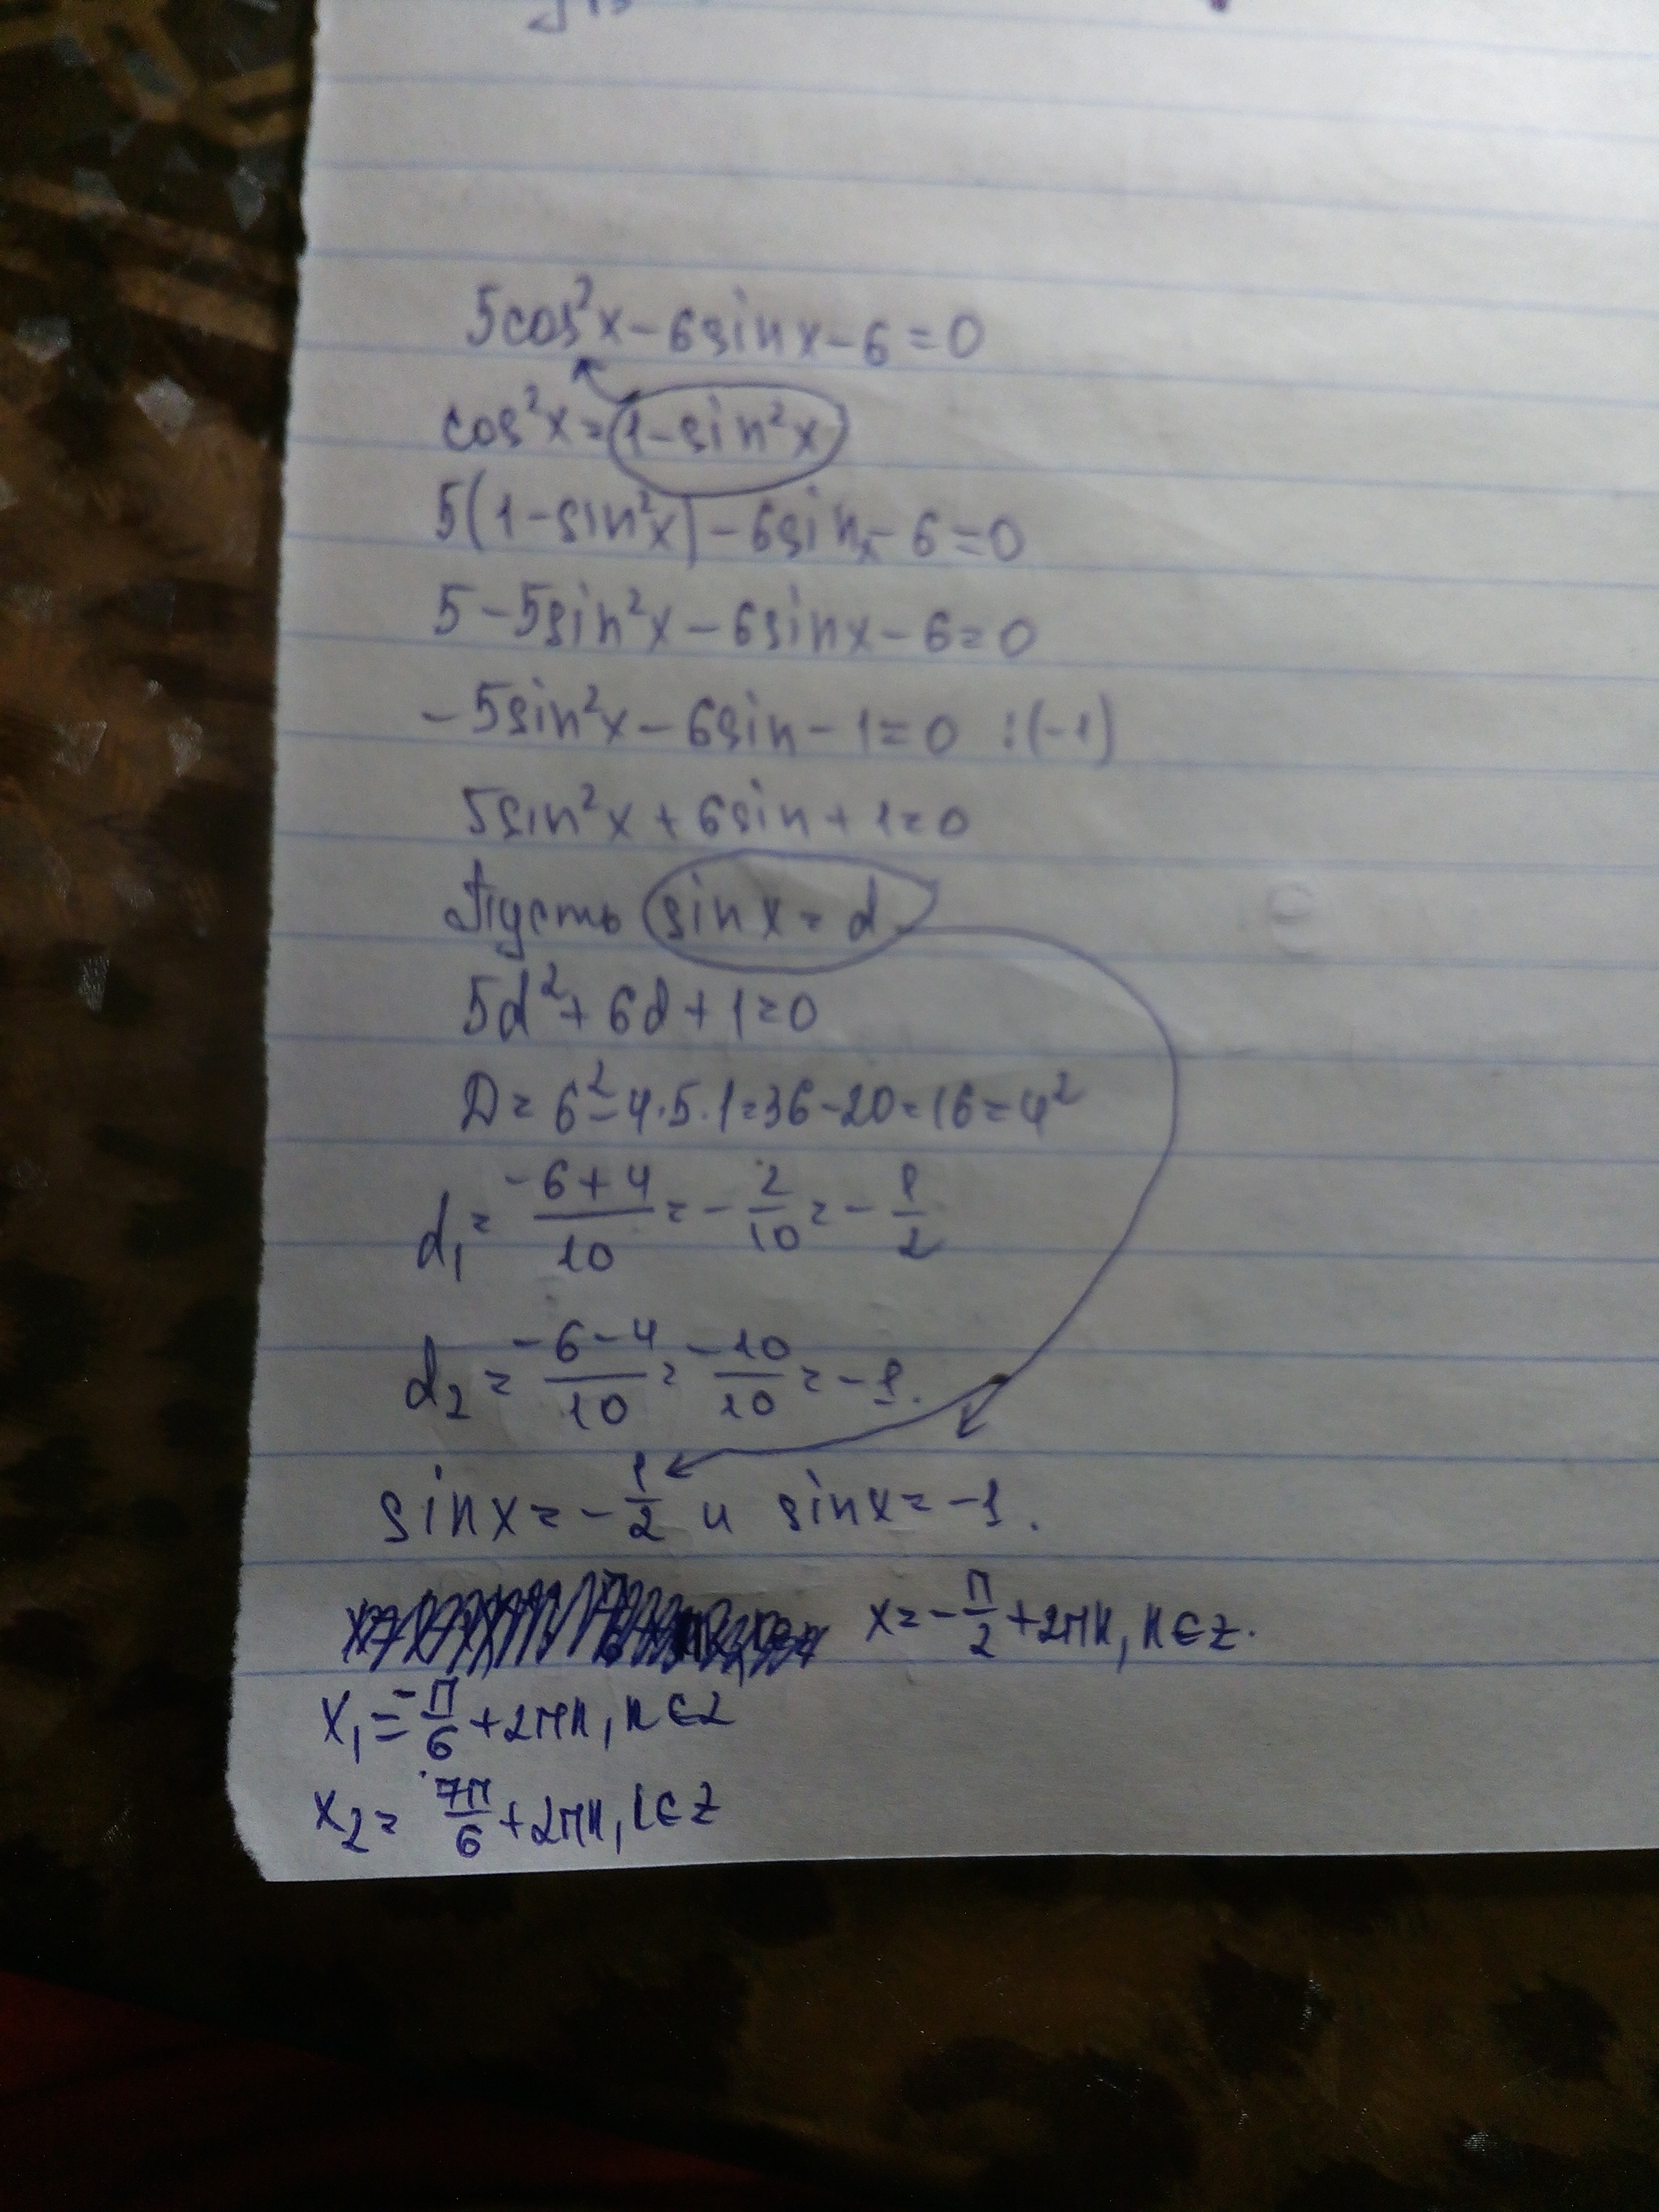 5cos²x-6sinx-6=0
cos²x=1-sin²x
5(1-sin²x)-6sinx-6=0
5-5sin²x-6sinx-6=0
-5sin²x-6sin-1=0 :(-1)
5sin²x+6sin+1=0
Пусть sinx=d
5d²+6d+1=0
D=6²-4·5·1=36-20=16=4²
d₁=(-6+4)/10=-2/10=-1/2
d₂=(-6-4)/10=-10/10=-1.
sinx=-1/2 и sinx=-1.
x=-π/2+2πn, n∈Z.
x₁=-π/6+2πn, n∈Z
x₂=7π/6+2πn, L∈Z